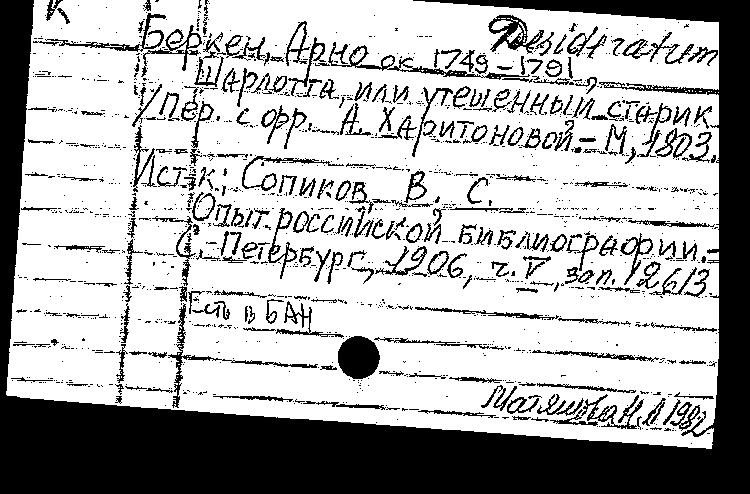 К
Desideratum
Беркен, Арно ок. 1749-1791,
Шарлотта, или утешенный старик
/Пер. с фр. А. Харитоновой.- М, 1803.
Ист-к: Сопиков, В. С.
Опыт российской библиографии.-
С.-Петербург, 1906, ч. V, зап. 12613
Есть в БАН
Н.А 1982